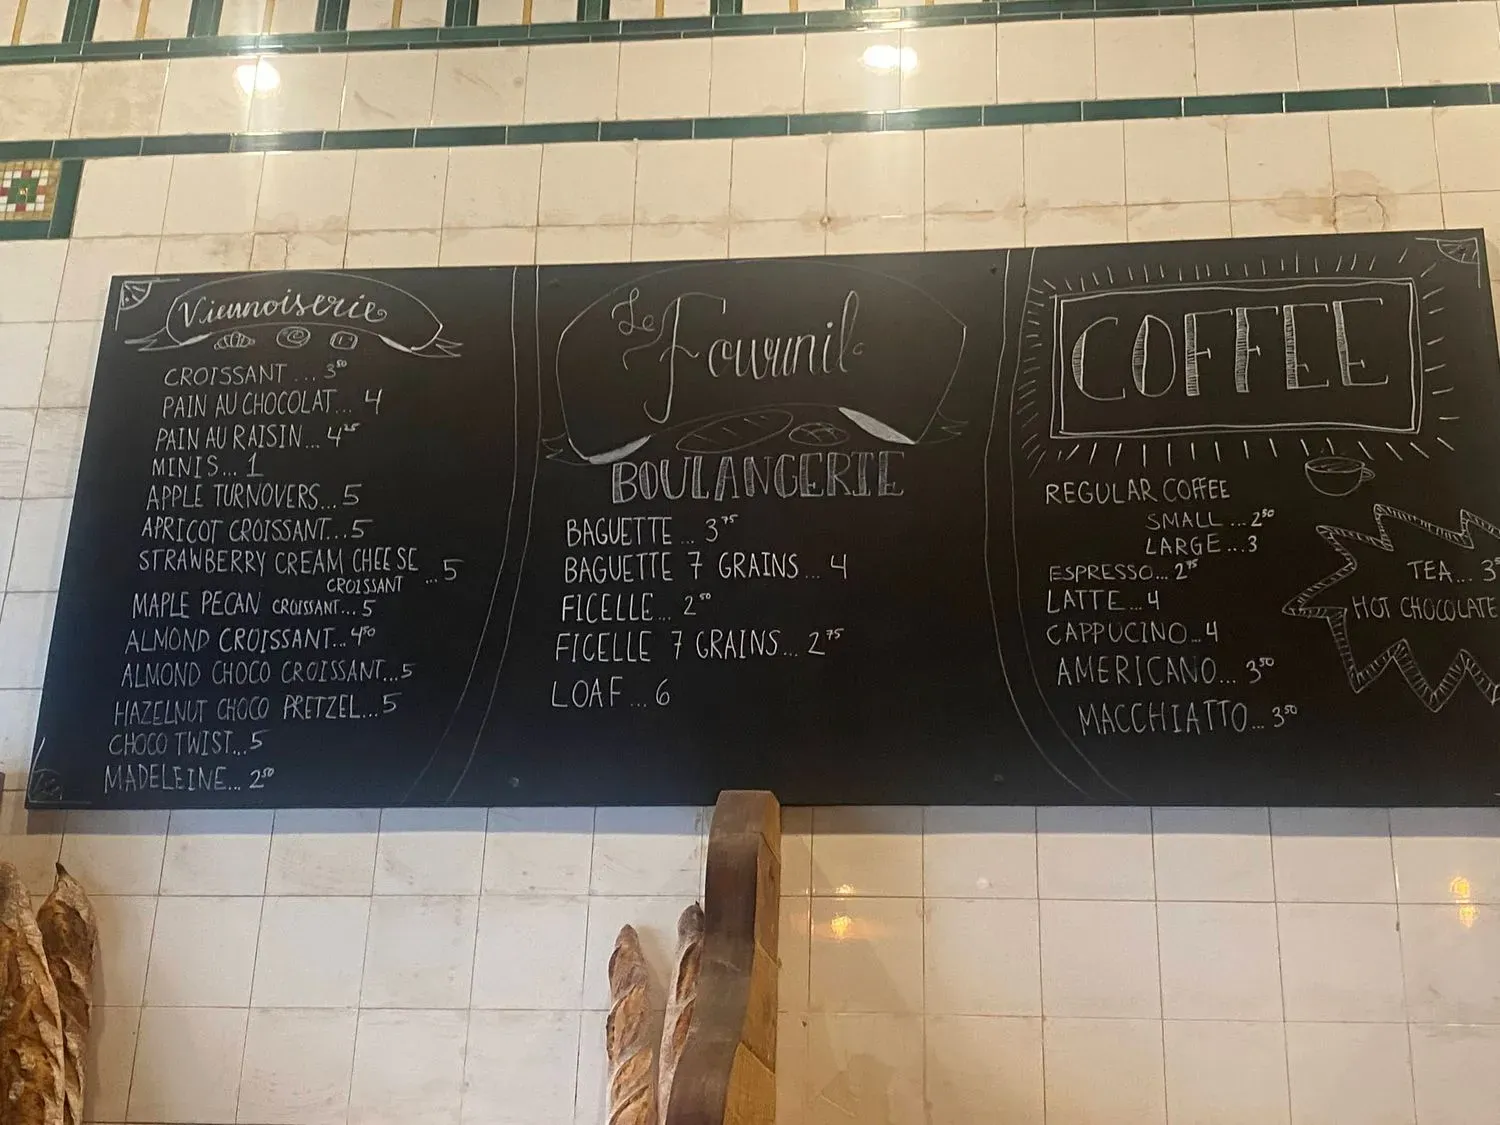 Viennoiserie
CROISSANT ... 3⁵⁰
PAIN AU CHOCOLAT... 4
PAIN AU RAISIN... 4²⁵
MINIS... 1
APPLE TURNOVERS... 5
APRICOT CROISSANT... 5
STRAWBERRY CREAM CHEESE
CROISSANT ...5
MAPLE PECAN CROISSANT... 5
ALMOND CROISSANT... 4⁵⁰
ALMOND CHOCO CROISSANT...5
HAZELNUT CHOCO PRETZEL...5
CHOCO TWIST...5
MADELEINE... 2⁵⁰
Le
Fournil
BOULANGERIE
BAGUETTE ... 3⁷⁵
BAGUETTE 7 GRAINS ... 4
FICELLE... 2⁵⁰
FICELLE 7 GRAINS... 2⁷⁵
LOAF ... 6
COFFEE
REGULAR COFFEE
SMALL ... 2⁵⁰
LARGE ...3
ESPRESSO... 2⁷⁵
LATTE...4
CAPPUCINO...4
AMERICANO... 3⁵⁰
MACCHIATTO... 3⁵⁰
TEA... 3
HOT CHOCOLATE